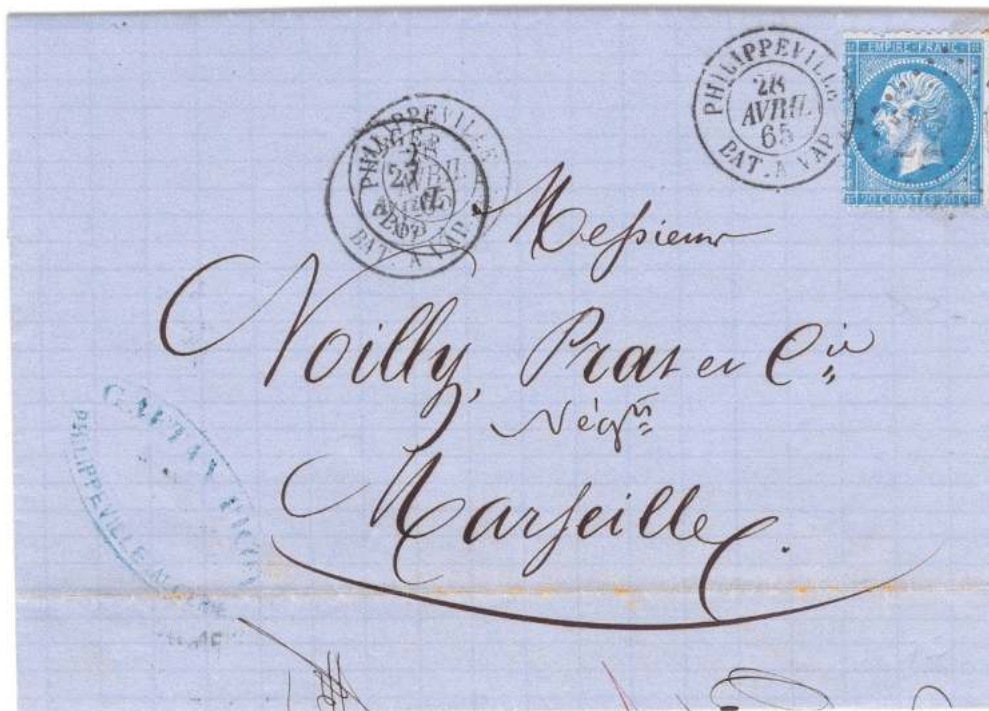 PHILIPPEVILLE
28
AVRIL
65
BAT. A VAP.
EMPIRE FRANC
20 C POSTES 20 C
PHILIPPEVILLE
AVRIL
BAT. A VAP.
Messieurs
Noilly, Prat et Cie
Négts
Marseille.
PHILIPPEVILLE